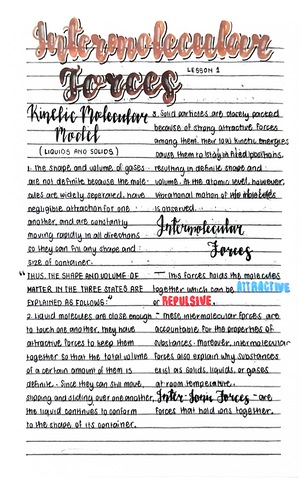 Intermolecular
Forces
LESSON 1
Kinetic Molecular
Model
(LIQUIDS AND SOLIDS)
1. The shape and volume of gases
are not definite because the mole-
cules are widely seperated, have
negligible attraction for one
another, and are constantly
moving rapidly in all directions
so they can fill any shape and
size of container.
"THUS, THE SHAPE AND VOLUME OF
MATTER IN THE THREE STATES ARE
EXPLAINED AS FOLLOWS:"
2. Liquid molecules are close enough
to touch one another; they have
attractive forces to keep them
together so that the total volume
of a certain amount of them is
definite. Since they can still move,
slipping and sliding over one another,
the liquid continues to conform
to the shape of its container.
3. Solid particles are closely packed
because of strong attractive forces
among them. Their low kinetic energies
cause them to stay in fixed positions,
resulting in definite shape and
volume. In the atomic level, however,
vibrational motion of
is observed.
Intermolecular
Forces
— This forces holds the molecules
together which can be ATTRACTIVE
or REPULSIVE.
— These intermolecular forces are
accountable for the properties of
substances. Moreover, intermolecular
forces also explain why substances
exist as solids, liquids, or gases
at room temperature.
Inter-Ionic Forces —are
forces that hold ions together.